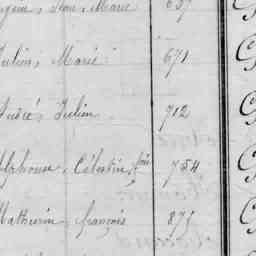 Jean, Marie 637
Julien, Marie 671
André, Julien 712
Alphonse, Célestin, fils 754
Mathurin, françois 875